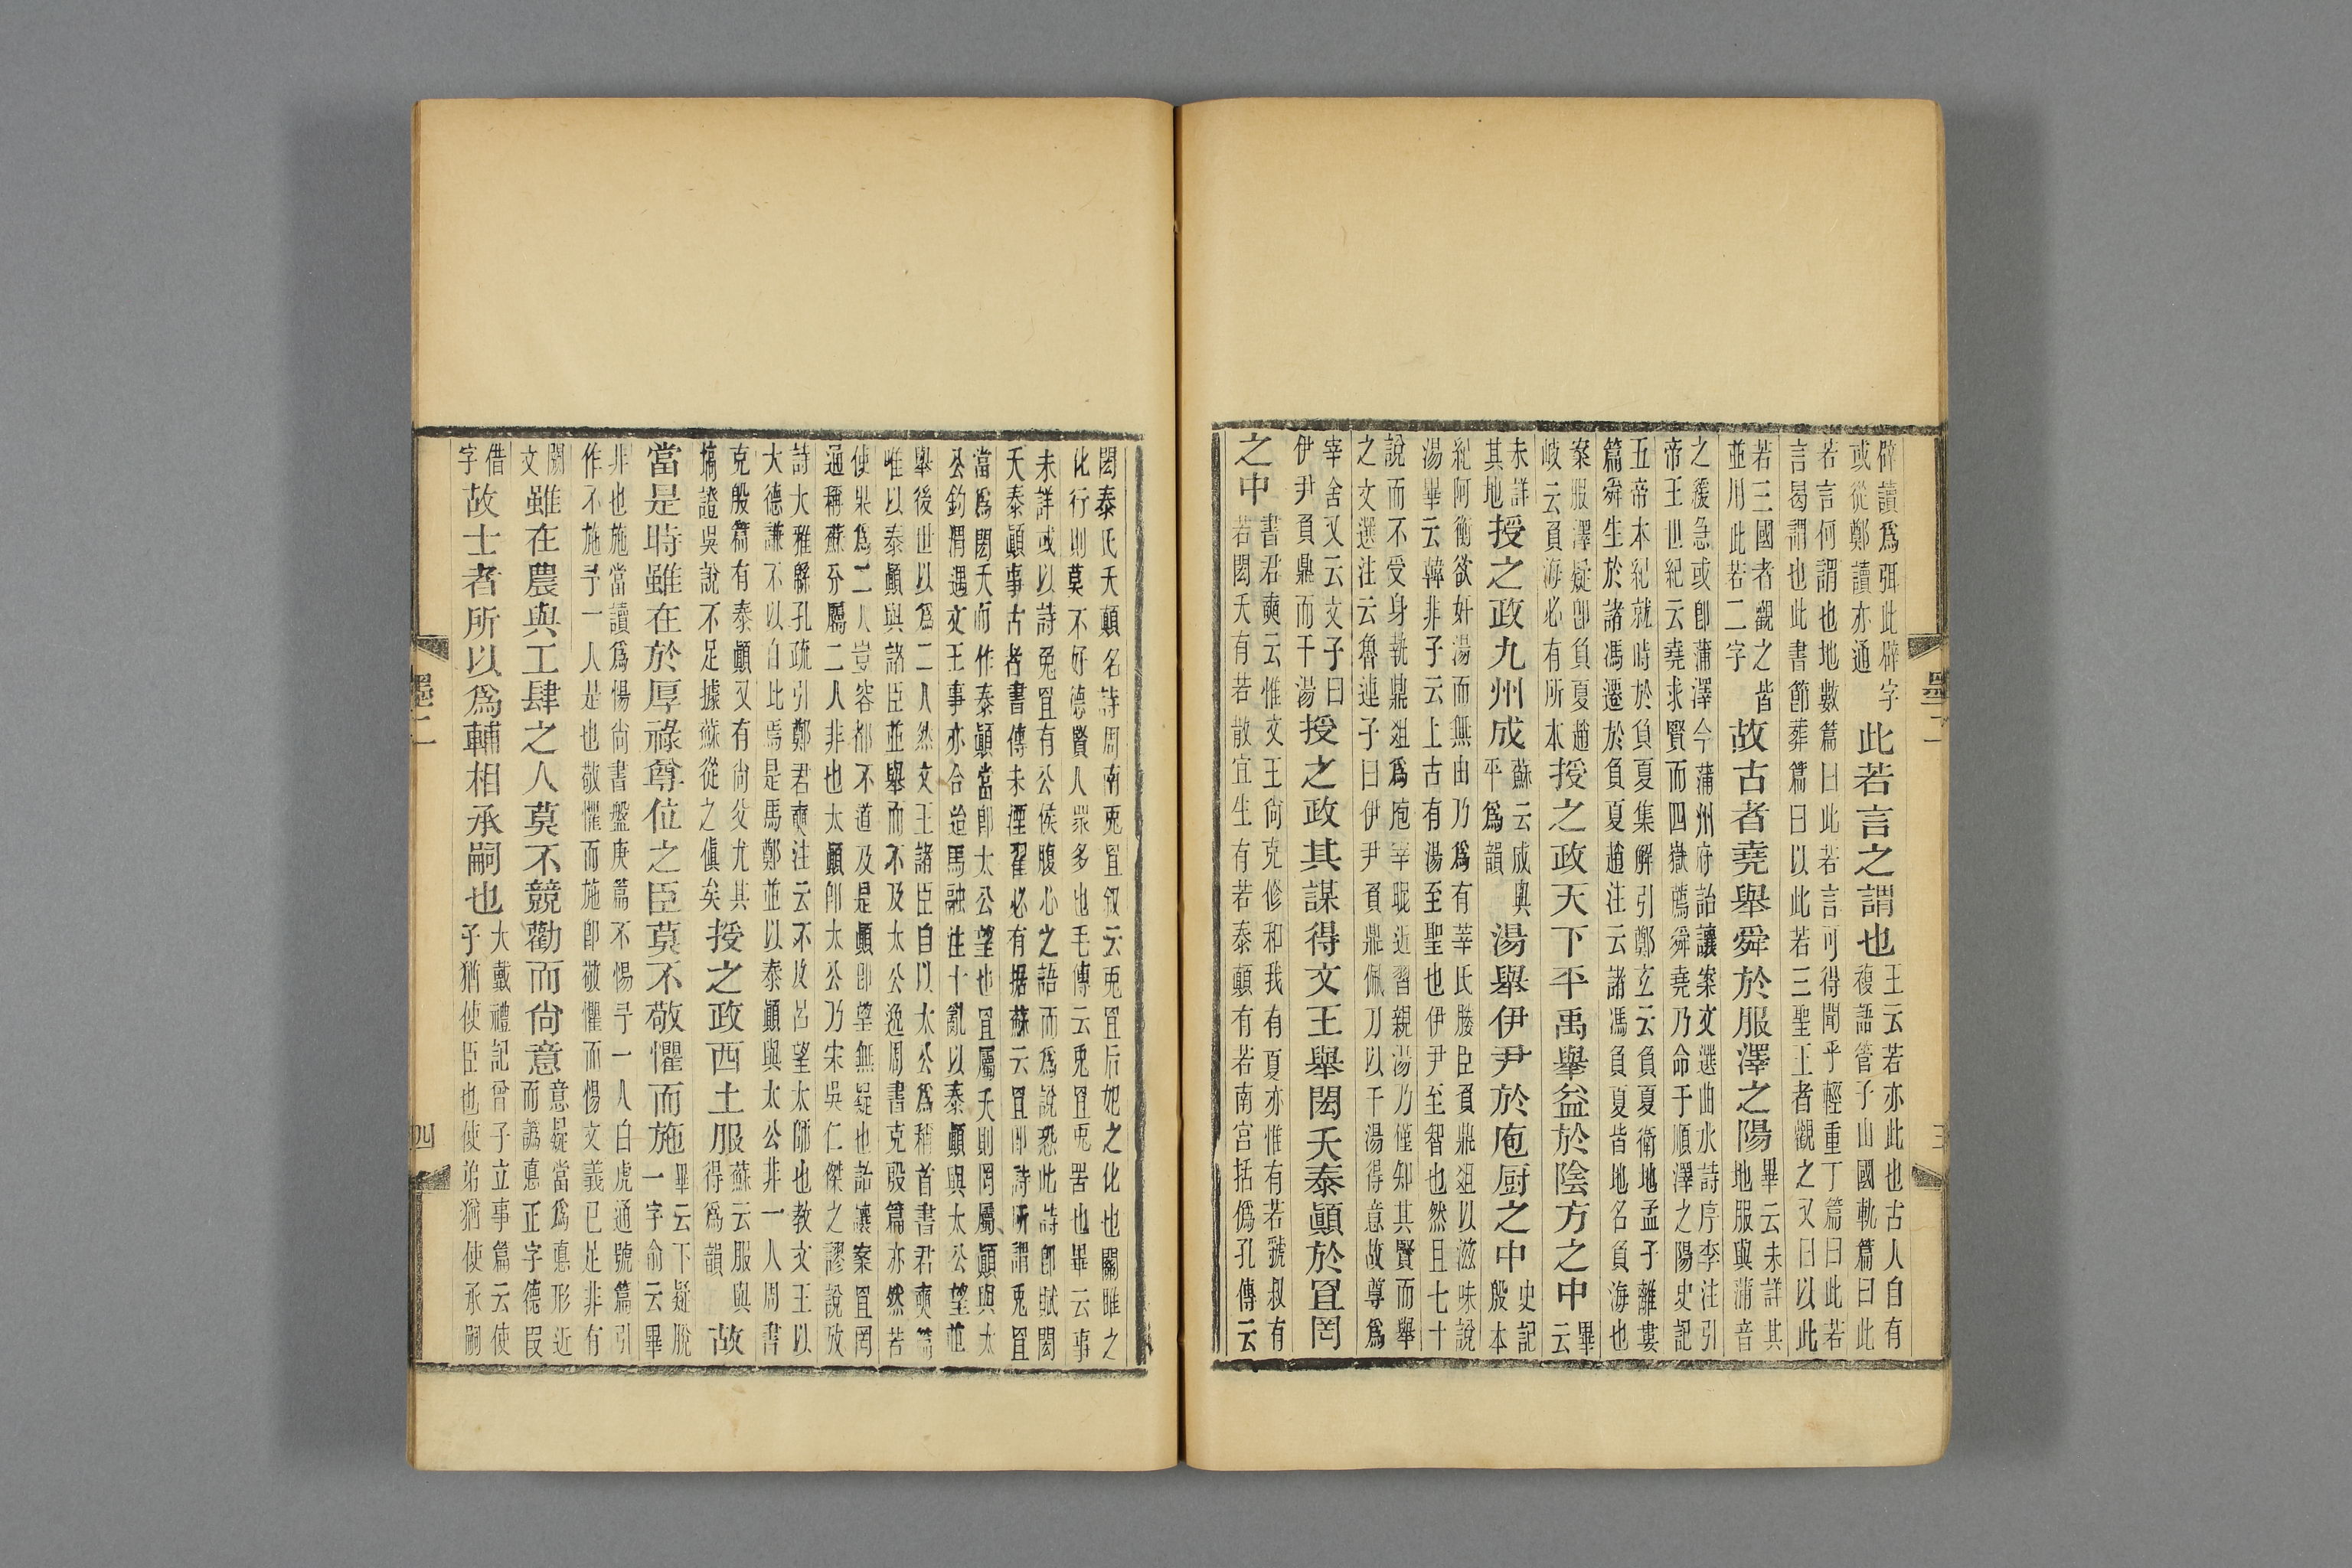 辟讀爲弭此辟字
或從鄭讀亦通
此若言之謂也
王云若亦此也古人自有
複語管子山國軌篇曰此
若言何謂也地數篇曰此若言可得聞乎輕重丁篇曰此若
言曷謂也此書節葬篇曰以此若三聖王者觀之又曰以此
若三國者觀之皆
並用此若二字
故古者堯舉舜於服澤之陽
畢云未詳其
地服與蒲音
之緩急或卽蒲澤今蒲州府詒讓案文選曲水詩序李注引
帝王世紀云堯求賢而四嶽薦舜堯乃命于順澤之陽史記
五帝本紀就時於負夏集解引鄭玄云負夏衛地孟子離婁
篇舜生於諸馮遷於負夏趙注云諸馮負夏皆地名負海也
案服澤疑卽負夏趙
岐云負海必有所本
授之政天下平禹舉益於陰方之中
畢
云
未詳
其地
授之政九州成
蘇云成與
平爲韻
湯舉伊尹於庖厨之中
史記
殷本
紀阿衡欲奸湯而無由乃爲有莘氏媵臣負鼎俎以滋味說
湯畢云韓非子云上古有湯至聖也伊尹至智也然且七十
說而不受身執鼎俎爲庖宰昵近習親湯乃僅知其賢而舉
之文選注云魯連子曰伊尹負鼎佩刀以干湯得意故尊爲
宰舍又云文子曰
伊尹負鼎而干湯
授之政其謀得文王舉閎夭泰顚於罝罔
之中
書君奭云惟文王尚克修和我有夏亦惟有若虢叔有
若閎夭有若散宜生有若泰顚有若南宮括僞孔傳云
墨二
三
閎泰氏夭顚名詩周南兎罝敘云兎罝后妃之化也關雎之
化行則莫不好德賢人眾多也毛傳云兎罝兎罟也畢云事
未詳或以詩兎罝有公侯腹心之語而爲說恐此詩卽賦閎
夭泰顚事古者書傳未湮翟必有据蘇云罝卽詩所謂兎罝
當爲閎夭而作泰顚當卽太公望也罝屬夭則罔屬顚與太
公釣渭遇文王事亦合迨馬融注十亂以泰顚與太公望並
舉後世以爲二人然文王諸臣自以太公爲稱首書君奭篇
唯以泰顚與諸臣並舉而不及太公逸周書克殷篇亦然若
使果爲二人豈容都不道及是顚卽望無疑也詒讓案罝罔
通稱蘇分屬二人非也太顚卽太公乃宋吳仁傑之謬說攷
詩大雅緜孔疏引鄭君奭注云不及呂望太師也教文王以
大德謙不以自比焉是馬鄭並以泰顚與太公非一人周書
克殷篇有泰顚又有尚父尤其
塙證吳說不足據蘇從之傎矣
授之政西土服
蘇云服與
得爲韻
故
當是時雖在於厚祿尊位之臣莫不敬懼而施
畢云下疑脫
一字俞云畢
非也施當讀爲惕尚書盤庚篇不惕予一人白虎通號篇引
作不施予一人是也敬懼而施卽敬懼而惕文義已足非有
闕
文
雖在農與工肆之人莫不競勸而尚意
意疑當爲悳形近
而譌悳正字德叚
借
字
故士者所以爲輔相承嗣也
大戴禮記曾子立事篇云使
子猶使臣也使弟猶使承嗣
墨二
四